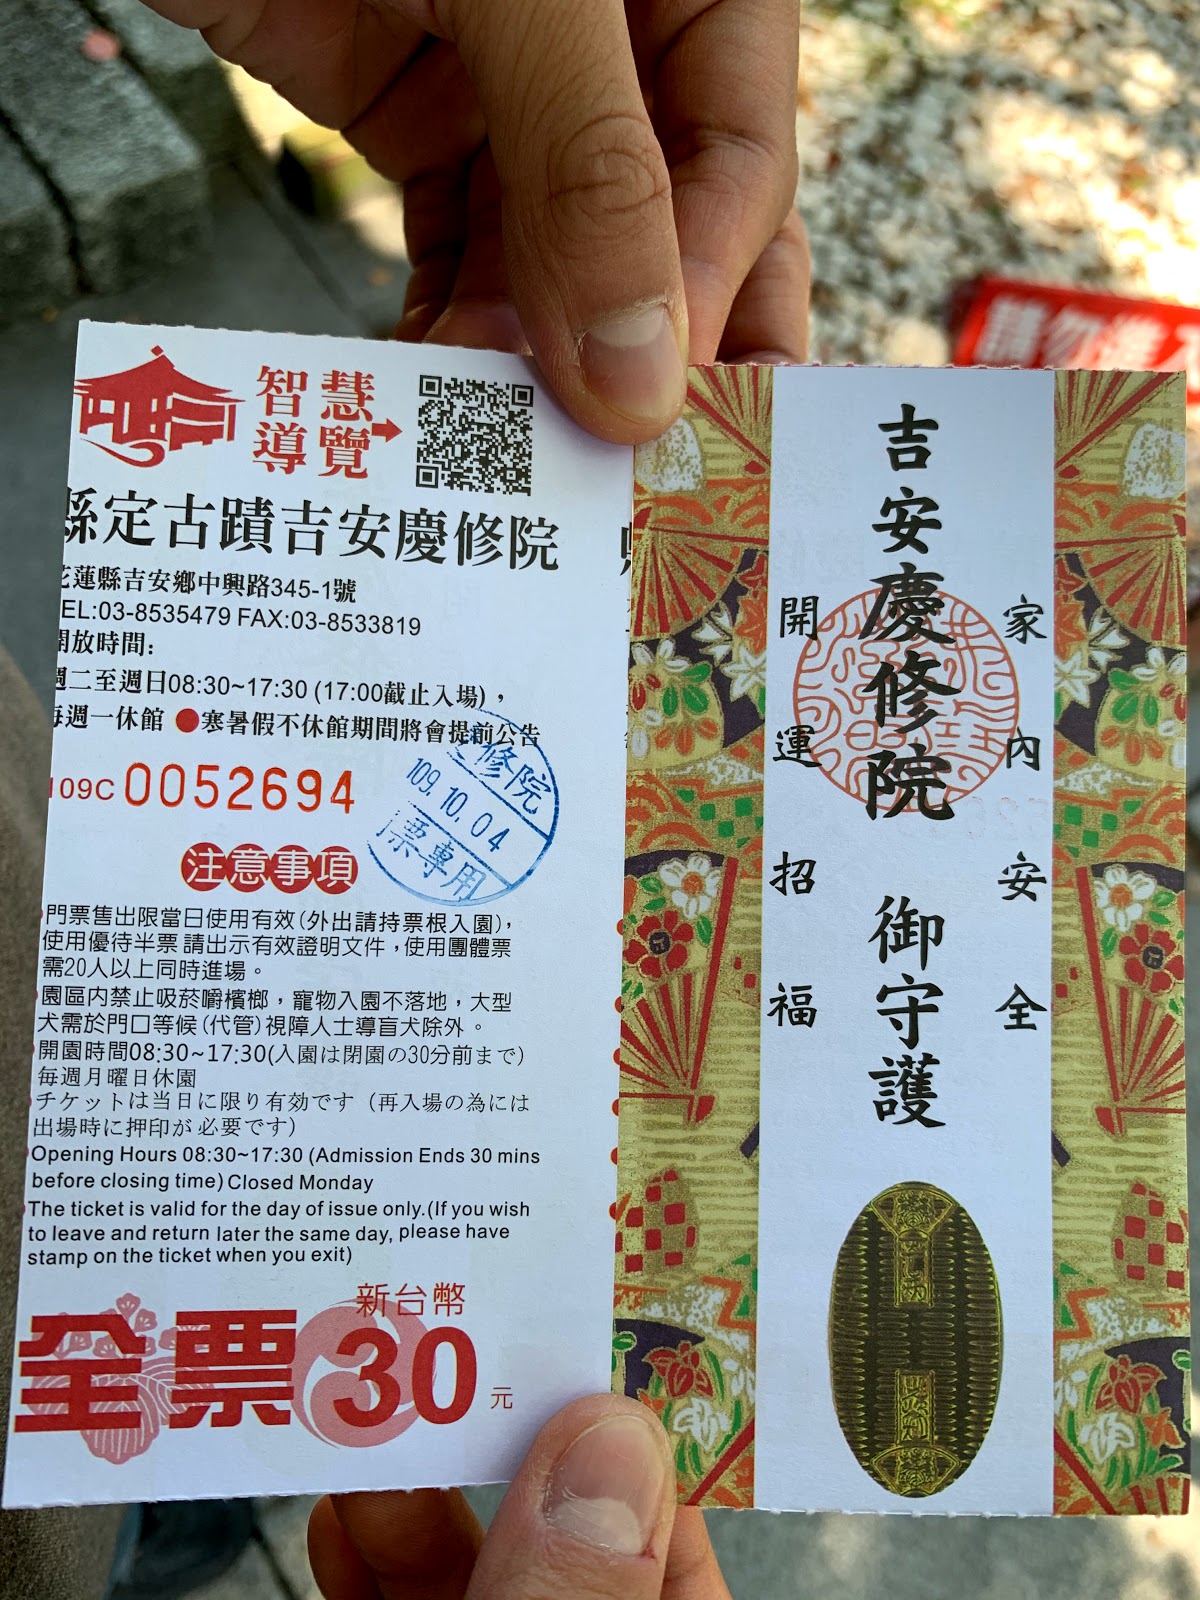 智慧
導覽
縣定古蹟吉安慶修院
花蓮縣吉安鄉中興路345-1號
TEL:03-8535479 FAX:03-8533819
開放時間:
週二至週日08:30~17:30 (17:00截止入場)，
每週一休館 ●寒暑假不休館期間將會提前公告
109C 0052694
修院
109.10.04
票專用
注意事項
門票售出限當日使用有效(外出請持票根入園)，
使用優待半票請出示有效證明文件，使用團體票
需20人以上同時進場。
園區內禁止吸菸嚼檳榔，寵物入園不落地，大型
犬需於門口等候(代管)視障人士導盲犬除外。
開園時間08:30~17:30(入園は閉園の30分前まで)
毎週月曜日休園
チケットは当日に限り有効です（再入場の為には
出場時に押印が必要です）
Opening Hours 08:30~17:30 (Admission Ends 30 mins
before closing time) Closed Monday
The ticket is valid for the day of issue only.(If you wish
to leave and return later the same day, please have
stamp on the ticket when you exit)
新台幣
全票 30 元
吉安慶修院 御守護
家內安全
開運招福
請勿進入